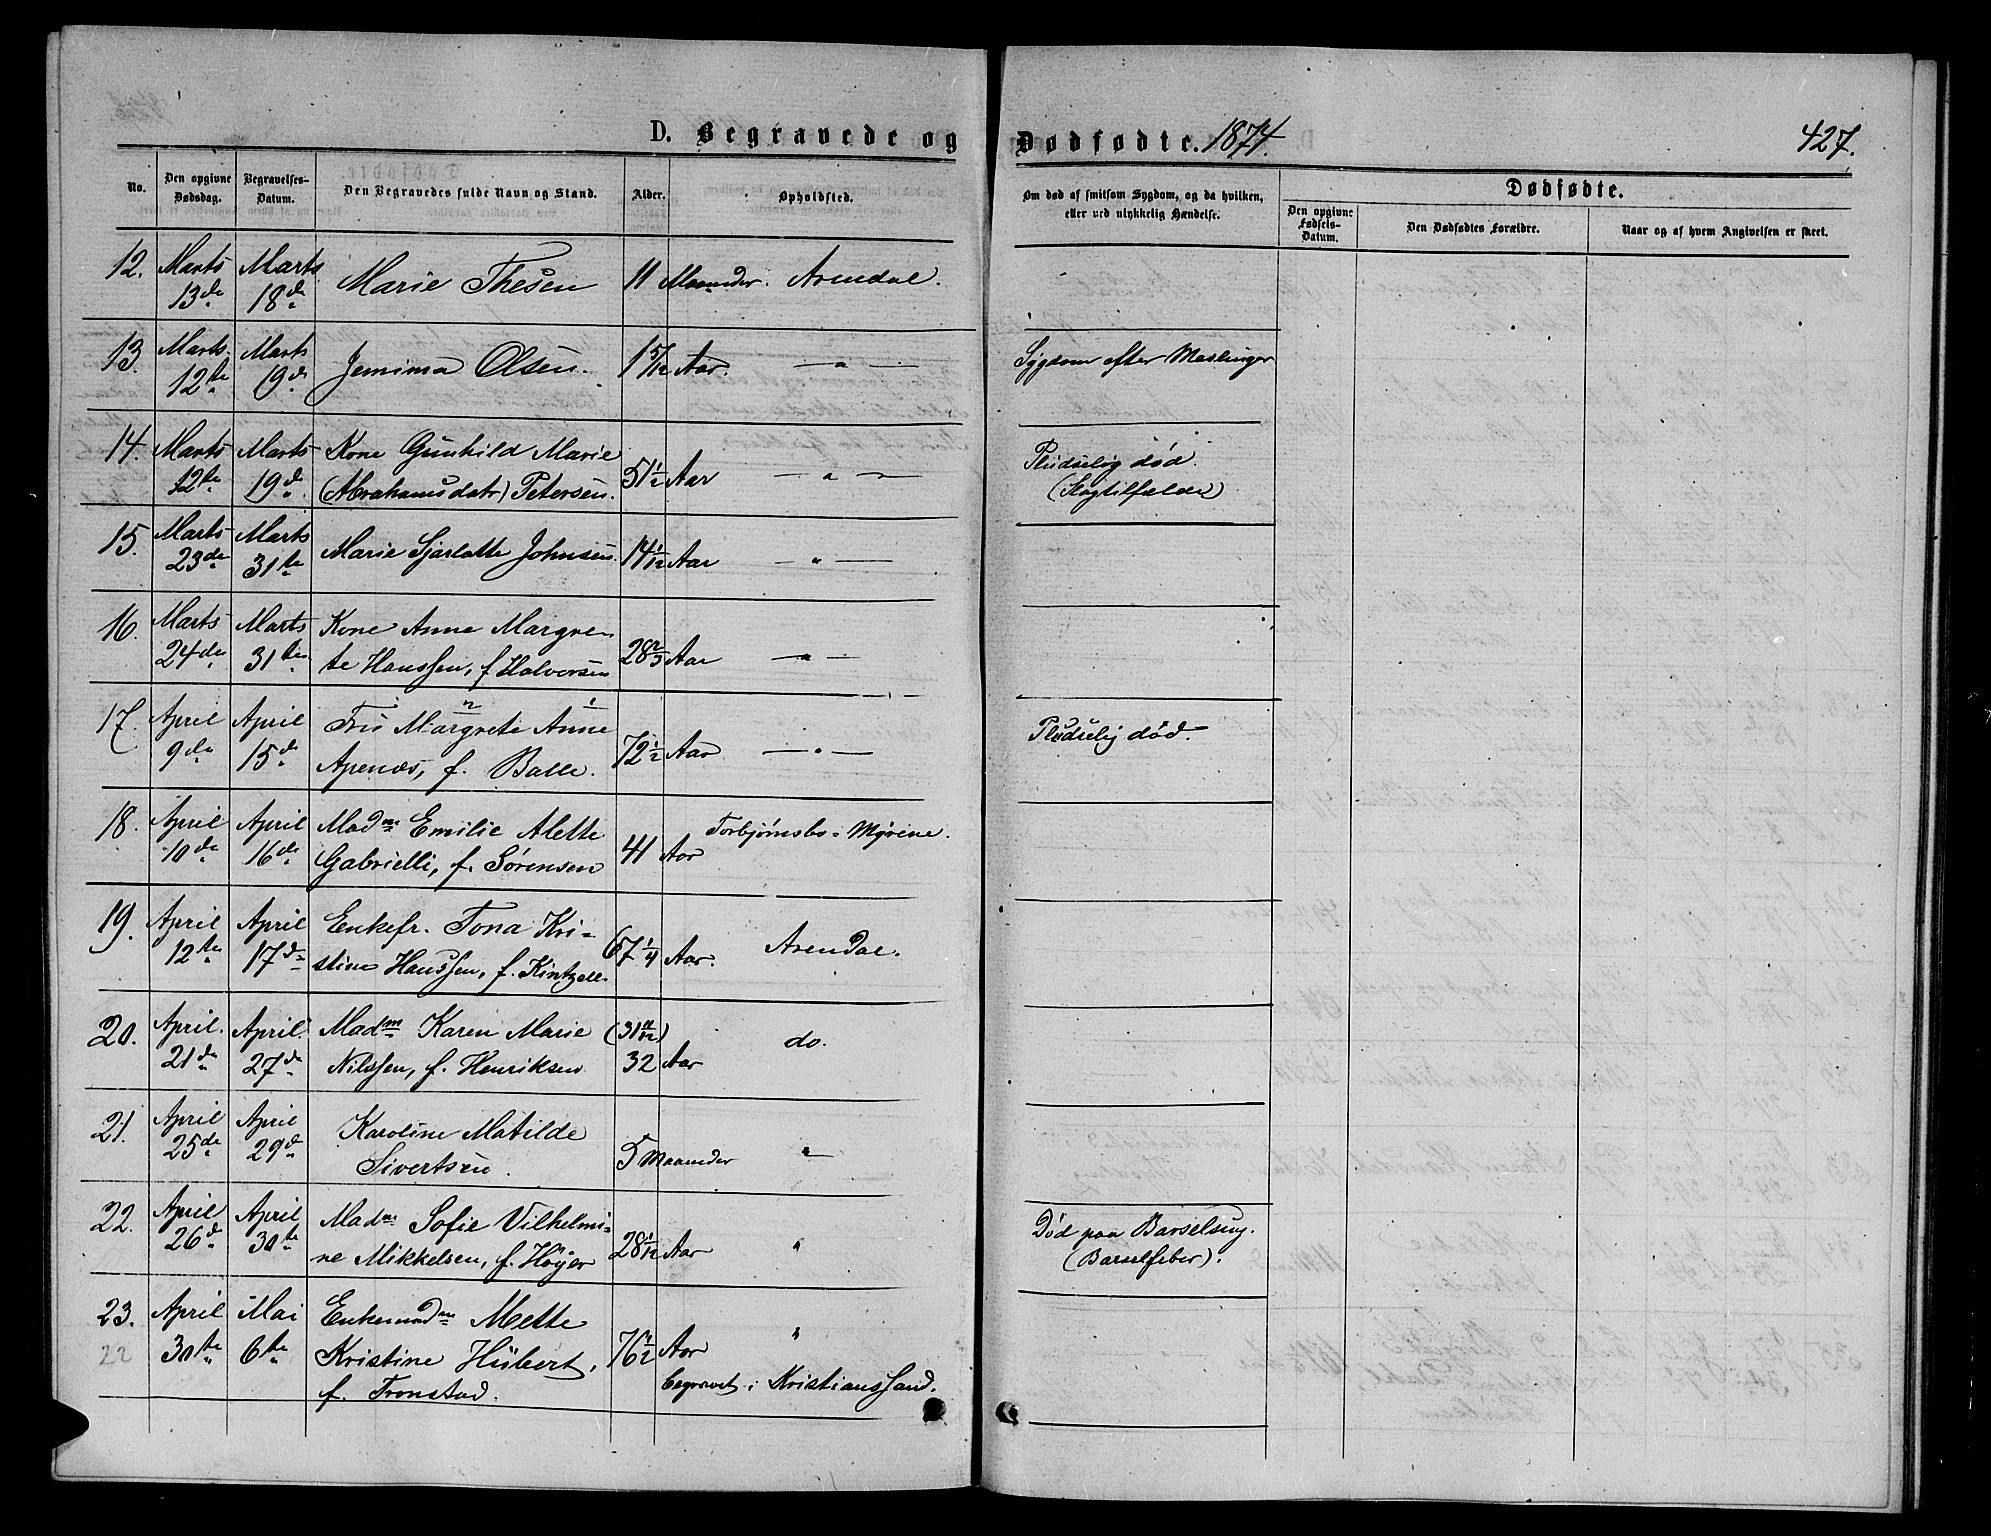 D. Begravede og Dødfødte. 1874. 427.
No. Den opgivne Dødsdag. Begravelses-Datum. Den Begravedes fulde Navn og Stand. Alder. Opholdsted. Om død af smitsom Sygdom, og da hvilken, eller ved ulykkelig Hændelse. Dødfødte.
Den opgivne Fødsels-Datum. Den Dødfødtes Forældre. Naar og af hvem Angivelsen er skeet.
12. Marts Marts Marie Thesen 11 Maaneder. Arendal.
13de 18de
13. Marts. Marts Jemima Olsen. 1 5/12 Aar. — " — Sygdom efter Meslinger
12te 19de
14. Marts Marts Kone Gunhild Marie Pludselig død.
12te 19de (Abrahamsdatr) Petersen. 51 1/2 Aar — " — (Slagtilfælde)
15. Marts Marts Marie Sjarlotte Johnsen. 14 1/12 Aar — " —
23de 31te
16. Marts Marts Kone Anne Margre-
24de 31te te Hanssen, f. Halvorsen 28 2/3 Aar — " —
17. April April Fru Margrete Anne Pludselig død.
9de 15de Apenæs, f. Balle. 72 1/2 Aar — " —
18. April April Madm Emilie Alette Torbjørnsbo-Myrene.
10de 16de Gabrielli, f. Sørensen 41 Aar
19. April April Enkefr. Tona Kri-
12te 17de stine Hanssen, f. Kintzell. 67 1/4 Aar. Arendal.
20. April. April. Madm Karen Marie (31 11/12) do.
21de 27de Nilssen, f. Henriksen 32 Aar
21. April April Karoline Matilde
25de 29de Sivertsen. 5 Maaneder "
22. April April Madm Sofie Vilhelmi- Død paa Barselseng.
26de 30te ne Mikkelsen, f. Høyer 28 1/12 Aar " (Barselfeber).
23. April Mai Enkemadm Mette "
22 30te 6te Kristine Hübert, 76 1/2 Aar
f. Tronstad. begravet i Kristianssand.